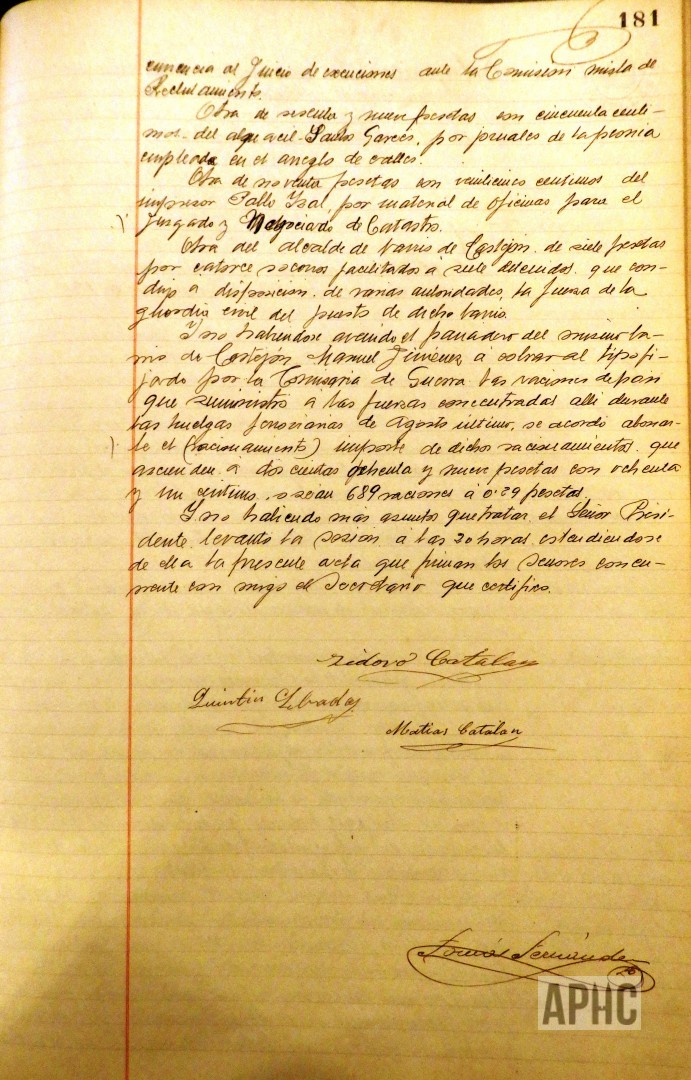 181
currencia al Juicio de exenciones ante la Comision mixta de
Reclutamiento.
Otra de sesenta y nueve pesetas con cincuenta centi-
mos del alguacil Santos Garcés, por jornales de la peonia
empleada en el arreglo de calles.
Otra de noventa pesetas con veinticinco centimos del
impresor Pablo Ysal, por material de oficinas para el
Juzgado y Negociado de Catastro.
Otra del alcalde de barrio de Castejón de siete pesetas
por catorce socorros facilitados á siete detenidos que con-
dujo a disposicion de varias autoridades, la fuerza de la
guardia civil del puesto de dicho barrio.
Y no habiendose avenido el panadero del mismo ba-
rrio de Castejón Manuel Jiménez á cobrar al tipo fi-
jado por la Comisaria de Guerra las raciones de pan
que suministró a las fuerzas concentradas alli durante
las huelgas ferroviarias de Agosto ultimo, se acordó abonar-
le el (racionamiento) importe de dichos racionamientos que
ascienden a dos cientas ochenta y nueve pesetas con ochenta
y un centimo, o sean 689 raciones á 0'29 pesetas.
Y no habiendo más asuntos que tratar el Señor Presi-
dente levantó la sesión a las 20 horas, estendiendose
de ella la presente acta que firman los señores concu-
rrente con migo el Secretario que certifico.
Isidoro Catalan
Quintin
Matias Catalan
Tomás Fernández
APHC